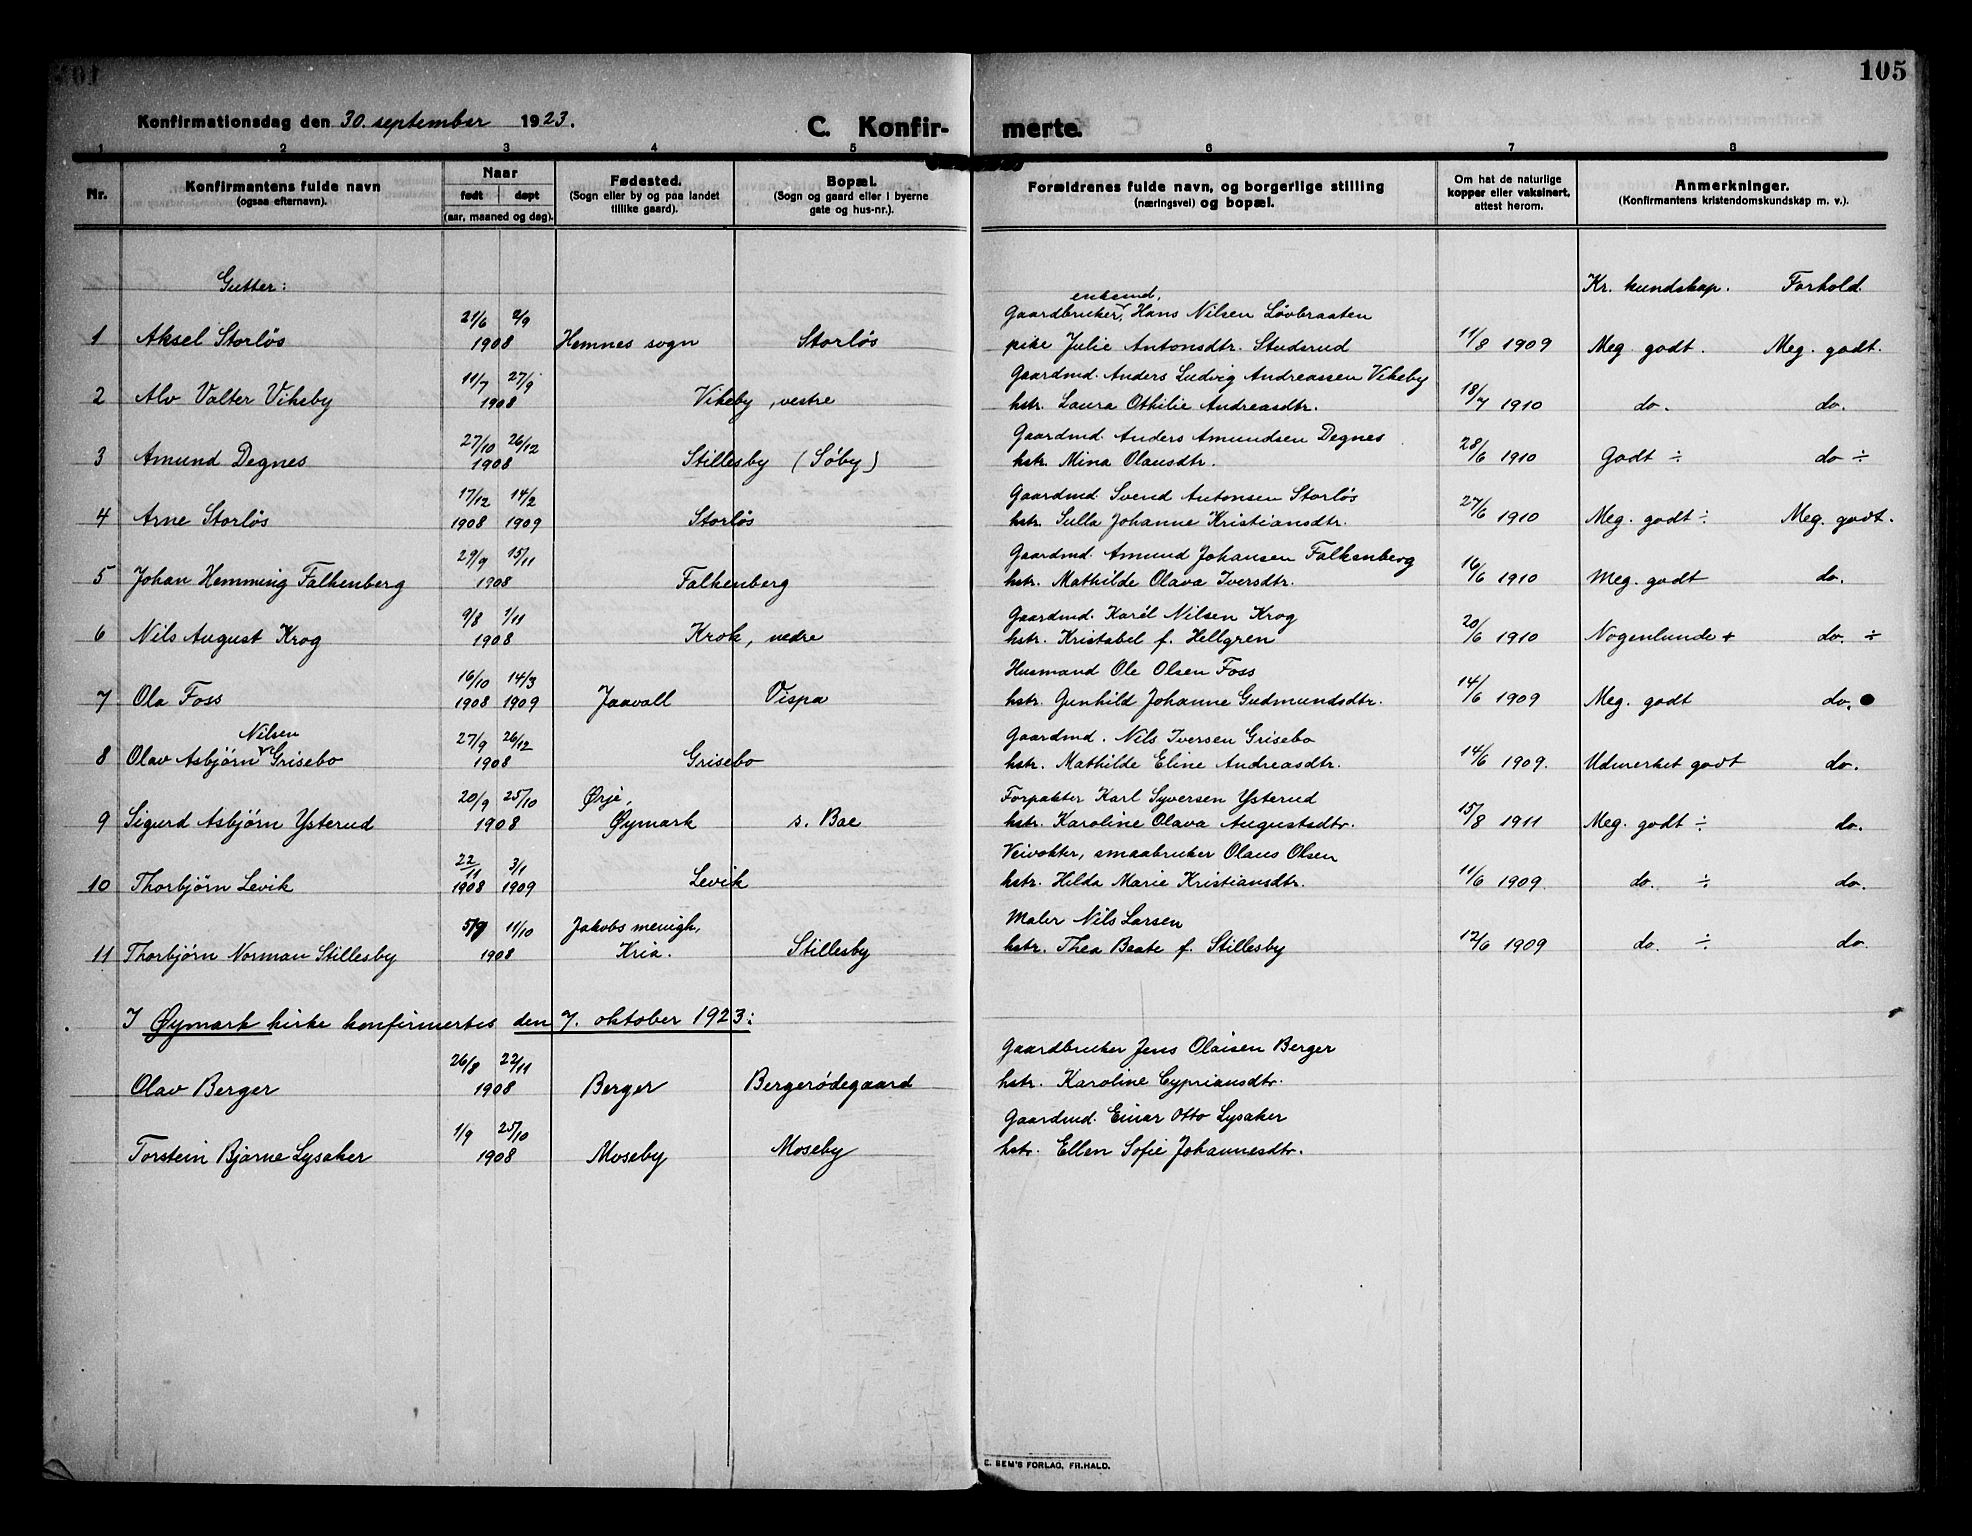 105
Konfirmationsdag den 30. september 1923.
C. Konfir- merte.
1 2 3 4 5 6 7 8
Nr.
Konfirmantens fulde navn
(ogsaa efternavn).
Naar
født døpt
(aar, maaned og dag).
Fødested.
(Sogn eller by og paa landet
tillike gaard).
Bopæl.
(Sogn og gaard eller i byerne
gate og hus-nr.).
Forældrenes fulde navn, og borgerlige stilling
(næringsvei) og bopæl.
Om hat de naturlige
kopper eller vaksinert,
attest herom.
Anmerkninger.
(Konfirmantens kristendomskundskap m. v.).
Gutter: Kr. kundskap. Forhold
enkemd,
21/6 2/9 Gaardbruker, Hans Nilsen Løvbraaten
1 Aksel Storløs 1908 Hemnes sogn Storløs pike Julie Antonsdtr. Studsrud 11/8 1909 Meg. godt. Meg. godt.
11/7 27/9 Gaardmd. Anders Ludvig Andreassen Vikeby
2 Alv Valter Vikeby 1908 Vikeby, vestre hstr. Laura Othilie Andreasdtr. 18/7 1910 do. do.
27/10 26/12 Gaardmd. Anders Amundsen Degnes
3 Amund Degnes 1908 Stillesby (Søby) hstr. Mina Olausdtr. 28/6 1910 Godt ÷ do ÷
17/12 14/2 Gaardmd. Svend Antonsen Storløs
4 Arne Storløs 1908 1909 Storløs hstr. Sulla Johanne Kristiansdtr. 27/6 1910 Meg. godt ÷ Meg. godt.
29/9 15/11 Gaardmd. Amund Johansen Falkenberg
5 Johan Hemming Falkenberg 1908 Falkenberg hstr. Mathilde Olava Iversdtr. 16/6 1910 Meg. godt do.
9/8 1/11 Gaardmd. Karél Nilsen Krog
6 Nils August Krog 1908 Krok, nedre hstr. Kristabel f. Hellgren 20/6 1910 Nogenlunde + do. ÷
16/10 14/3 Husmand Ole Olsen Foss
7 Ola Foss 1908 1909 Jaavall Vispa hstr. Gunhild Johanne Gudmundsdtr. 14/6 1909 Meg. godt do.
Nilsen 27/9 26/12 Gaardmd. Nils Iversen Grisebo
8 Olav Asbjørn Grisebo 1908 Grisebo hstr. Mathilde Eline Andreasdtr. 14/6 1909. Udmerket godt do.
20/9 25/10 Ørje, Forpakter Karl Syversen Ysterud
9 Sigurd Asbjørn Ysterud 1908 Øymark s. Bae hstr. Karoline Olava Augustsdtr. 15/8 1911 Meg. godt ÷ do.
22/11 3/1 Veivokter, smaabruker Olaus Olsen
10 Thorbjørn Levik 1908 1909 Levik hstr. Hilda Marie Kristiansdtr. 11/6 1909. do. ÷ do.
5/9 11/10 Jakobs menigh, Maler Nils Larsen
11 Thorbjørn Norman Stillesby 1908 Kria. Stillesby hstr. Thea Beate f. Stillesby 12/6 1909 do. ÷ do.
I Øymark kirke konfirmertes den 7. oktober 1923:
26/8 22/11 Gaardbruker Jens Olaisen Berger
Olav Berger 1908 Berger Bergerødegaard hstr. Karoline Cypriansdtr.
1/9 25/10 Gaardmd. Einar Otto Lysaker
Torstein Bjarne Lysaker 1908 Moseby Moseby hstr. Ellen Sofie Johannesdtr.
E. SEM'S FORLAG, FR.HALD.